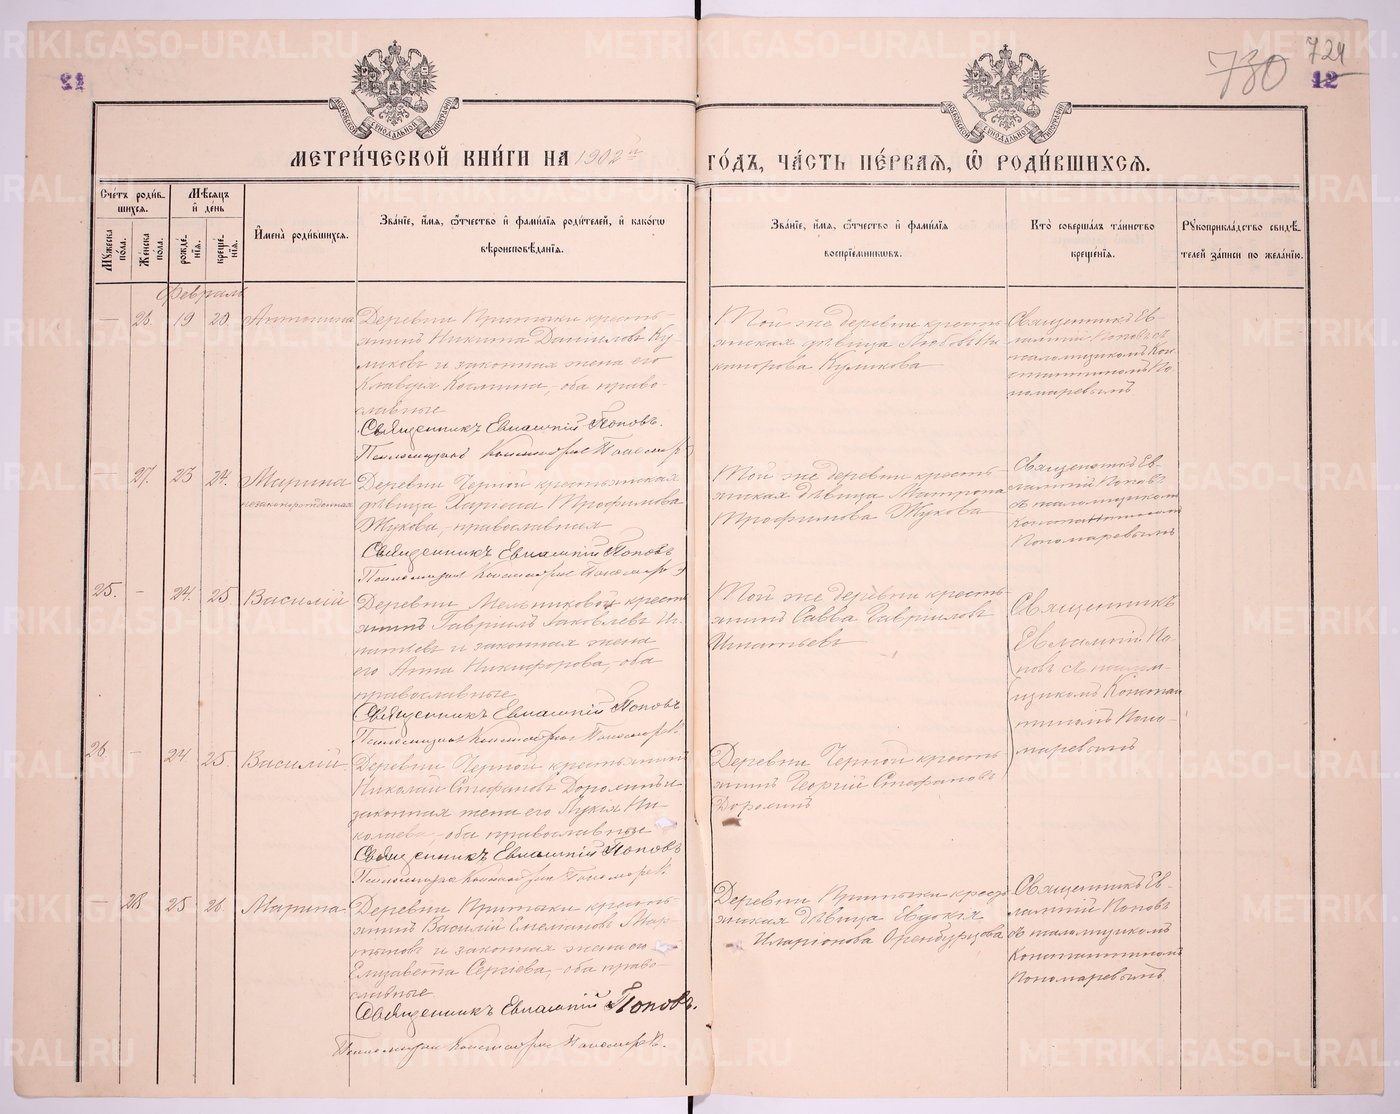 730 724
12
МЕТРИ́ЧЕСКОЙ КНИ́ГИ НА 1902й ГО́ДЪ, ЧА́СТЬ ПЕ́РВАЯ, Ѽ РОДИ́ВШИХСЯ.
Сче́тъ роди́вшихся.
Му́жеска по́ла.
Же́нска по́ла.
Мѣ́сяцъ и҆ де́нь
рожде́нїѧ.
креще́нїѧ.
И҆мена̀ роди́вшихся.
Зва́нїе, и҆́мѧ, ѻ҆́тчество и҆ фами́лїѧ роди́телей, и҆ како́гѡ
вѣроисповѣ́данїѧ.
Зва́нїе, и҆́мѧ, ѻ҆́тчество и҆ фами́лїѧ
воспрїе́мникѡвъ.
Кто̀ соверша́лъ та́инство
креще́нїѧ.
Рꙋкоприкла́дство свидѣ́телей за́писи по жела́нїю.
Февраль
— 26. 19 20. Антонина
Деревни Притыки кресть-
янинъ Никита Даниловъ Ку-
ликовъ и законная жена его
Клавдия Космина, оба право-
славные
Священникъ Евлампій Поповъ.
Той же деревни кресть-
янская дѣвица Любовь Ни-
кифорова Куликова
Священникъ Ев-
лампій Поповъ съ
псаломщикомъ Кон-
стантиномъ По-
номаревымъ
— 27. 23 24. Марина
незаконорожденная
Деревни Черной крестьянская
дѣвица Лариса Трофимова
Жукова, православная
Священникъ Евлампій Поповъ
Той же деревни кресть-
янская дѣвица Матрона
Трофимова Жукова
Священникъ Ев-
лампій Поповъ
съ псаломщикомъ
Константиномъ
Пономаревымъ
25. — 24. 25. Василій
Деревни Мельниковой кресть-
янинъ Гавріилъ Іаковлевъ Иг-
натьевъ и законная жена
его Анна Никифорова, оба
православные
Священникъ Евлампій Поповъ
Той же деревни кресть-
янинъ Савва Гавріиловъ
Игнатьевъ
Священникъ
Евлампій По-
повъ съ псалом-
щикомъ Констан-
тиномъ Поно-
маревымъ
26. — 24 25. Василій.
Деревни Черной крестьянинъ
Николай Стефановъ Дороминъ и
законная жена его Лукія Ни-
колаева, оба православные
Священникъ Евлампій Поповъ
Деревни Черной кресть-
янинъ Георгій Стефановъ
Дороминъ
— 28. 25 26. Марина.
Деревни Притыки кресть-
янинъ Василій
и законная жена его
Елизавета Сергіева, оба право-
славные
Священникъ Евлампій Поповъ.
Деревни Притыки кресть-
янская дѣвица Евдокія
Иларіонова Оренбурцова
Священникъ Ев-
лампій Поповъ
съ псаломщикомъ
Константиномъ
Пономаревымъ